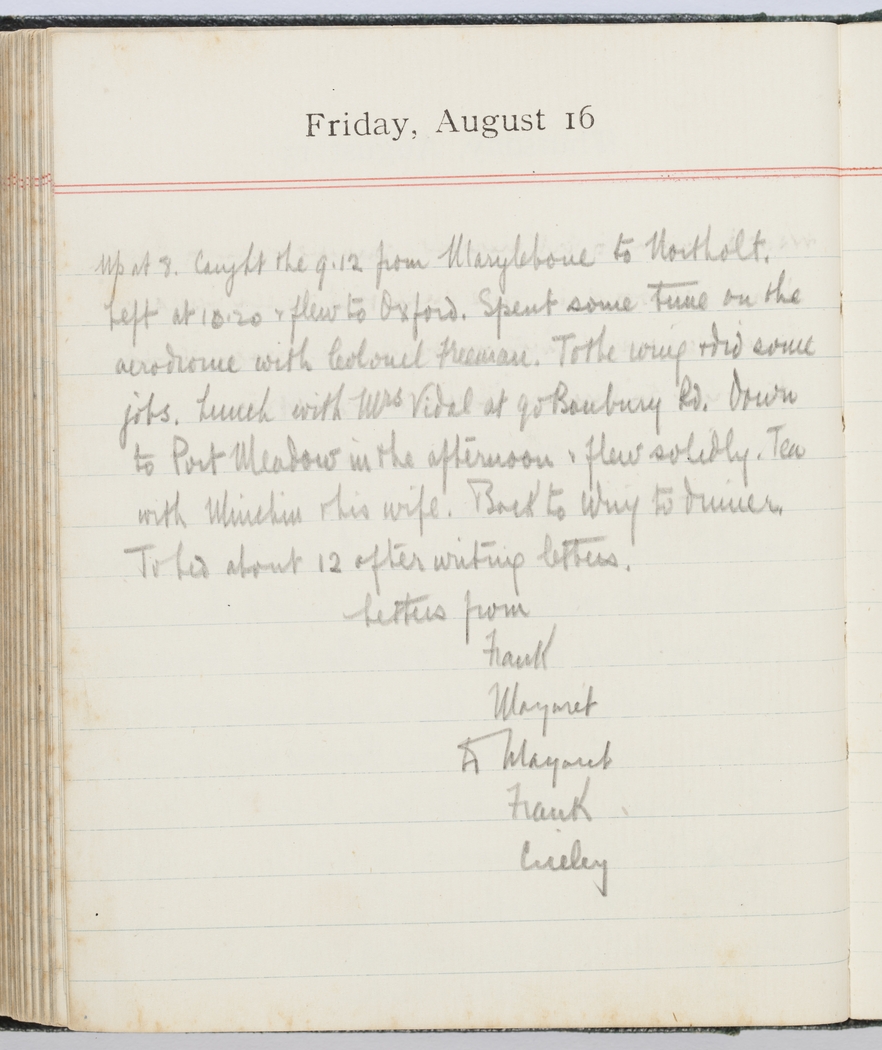 Friday, August 16
Up at 8. Caught the 9.12 from Marylebone to Northolt.
Left at 10.20 & flew to Oxford. Spent some time on the
aerodrome with Colonel Freeman. To the wing & did some
jobs. Lunch with Mrs Vidal at 90 Banbury Rd. Down
to Port Meadow in the afternoon & flew solidly. Tea
with Minchin & his wife. Back to Wing to dinner.
To bed about 12 after writing letters.
Letters from
Frank
Margaret
To Margaret
Frank
Ciceley